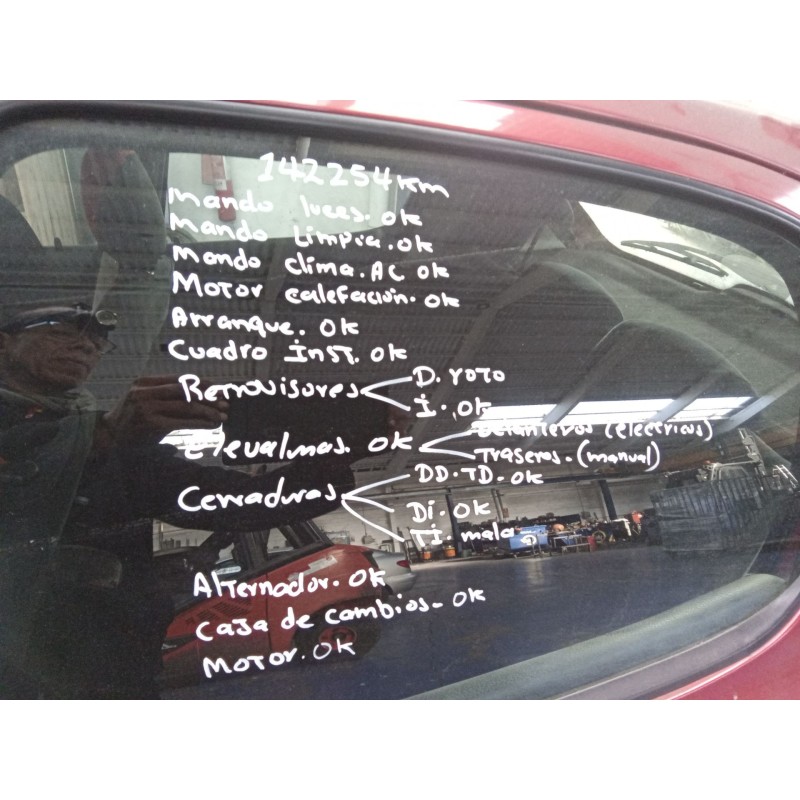 142254 km
Mando luces. ok
Mando Limpia. ok
Mando clima. AC ok
Motor calefación. ok
Arranque. ok
Cuadro inst. ok
Retrovisores D. roto
i. ok
Elevalunas. ok Delanteros (electricos)
Traseros. (manual)
Cerraduras DD. TD. ok
Di. ok
Ti. mala
Alternador. ok
Caja de cambios- ok
Motor. ok